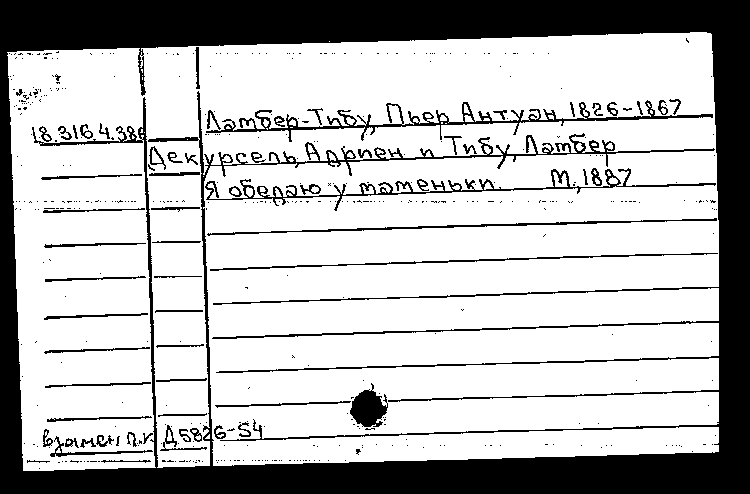 Ламбер-Тибу, Пьер Антуан, 1826-1867
18.316.4.386
Декурсель, Адриен и Тибу, Ламбер
Я обедаю у маменьки. М., 1887
взамен п.к. Д5826-54